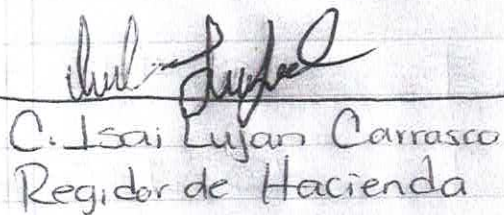 C. Isai Lujan Carrasco
Regidor de Hacienda